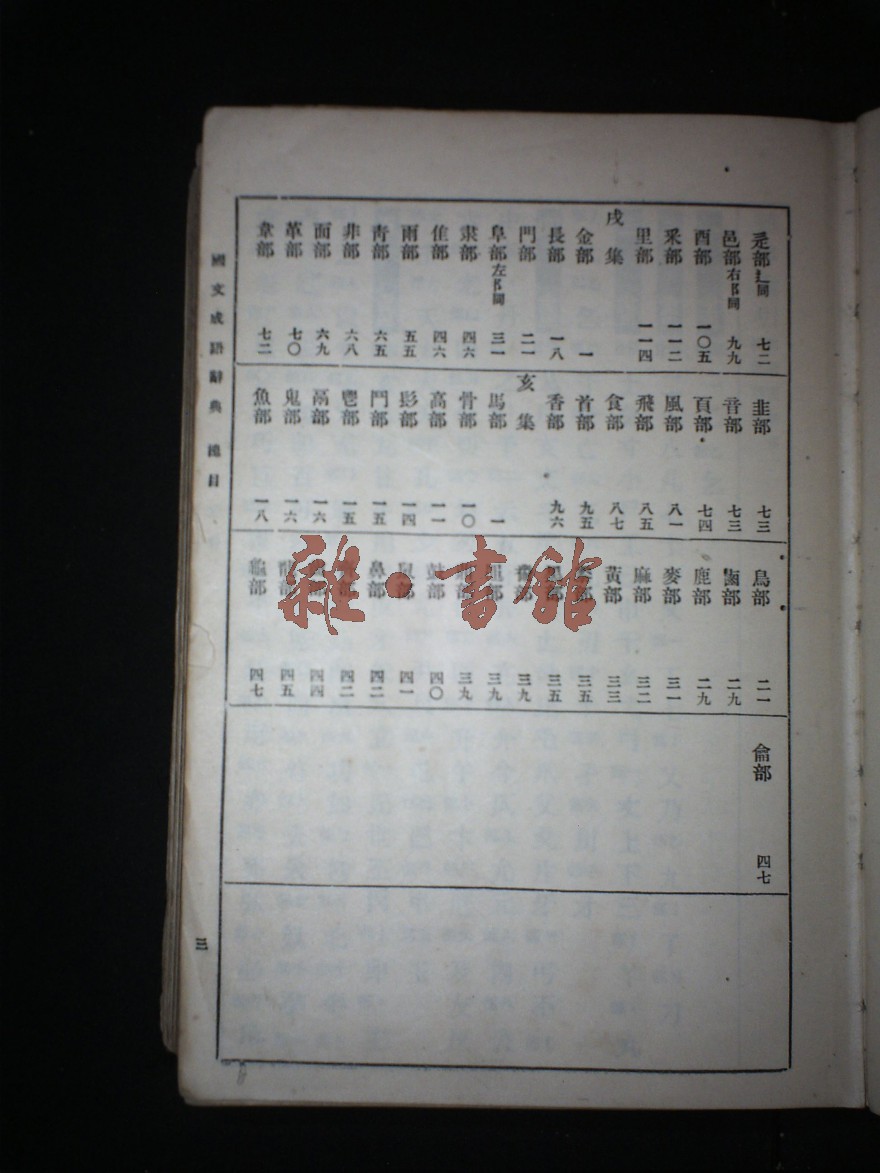 辵部 辶同 七二
邑部 右阝同 九九
酉部 一〇五
釆部 一一二
里部 一一四
戌集
金部 一
長部 一八
門部 二一
阜部 左阝同 三一
隶部 四六
隹部 四六
雨部 五五
靑部 六五
非部 六八
面部 六九
革部 七〇
韋部 七二
韭部 七三
音部 七三
頁部 七四
風部 八一
飛部 八五
食部 八七
首部 九五
香部 九六
亥集
馬部 一
骨部 一〇
高部 一一
髟部 一四
鬥部 一五
鬯部 一五
鬲部 一六
鬼部 一六
魚部 一八
鳥部 二一
鹵部 二九
鹿部 二九
麥部 三一
麻部 三二
黃部 三三
部 三五
部 三五
三九
部 三九
部 三九
鼓部 四〇
鼠部 四一
鼻部 四二
部 四二
四四
部 四五
龜部 四七
龠部 四七
國文成語辭典 總目
三
雜·書館